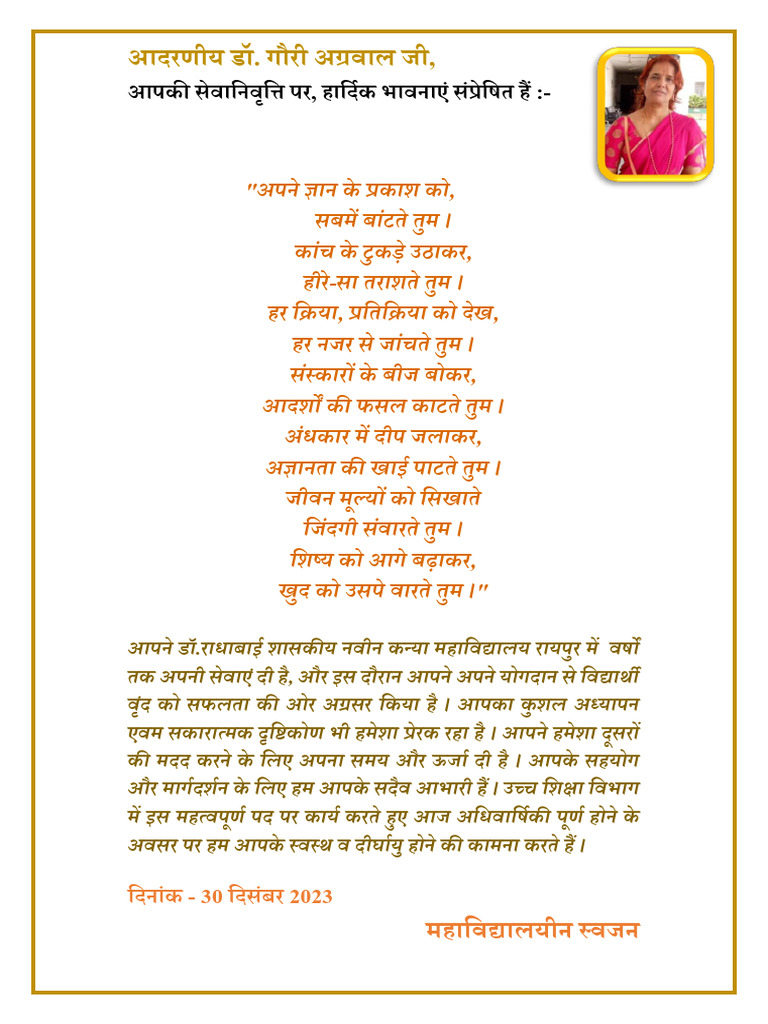 आदरणीय डॉ. गौरी अग्रवाल जी,
आपकी सेवानिवृत्ति पर, हार्दिक भावनाएं संप्रेषित हैं :-
"अपने ज्ञान के प्रकाश को,
सबमें बांटते तुम ।
कांच के टुकड़े उठाकर,
हीरे-सा तराशते तुम ।
हर क्रिया, प्रतिक्रिया को देख,
हर नजर से जांचते तुम ।
संस्कारों के बीज बोकर,
आदर्शों की फसल काटते तुम ।
अंधकार में दीप जलाकर,
अज्ञानता की खाई पाटते तुम ।
जीवन मूल्यों को सिखाते
जिंदगी संवारते तुम ।
शिष्य को आगे बढ़ाकर,
खुद को उसपे वारते तुम ।"
आपने डॉ.राधाबाई शासकीय नवीन कन्या महाविद्यालय रायपुर में वर्षों
तक अपनी सेवाएं दी है, और इस दौरान आपने अपने योगदान से विद्यार्थी
वृंद को सफलता की ओर अग्रसर किया है । आपका कुशल अध्यापन
एवम सकारात्मक दृष्टिकोण भी हमेशा प्रेरक रहा है । आपने हमेशा दूसरों
की मदद करने के लिए अपना समय और ऊर्जा दी है । आपके सहयोग
और मार्गदर्शन के लिए हम आपके सदैव आभारी हैं । उच्च शिक्षा विभाग
में इस महत्वपूर्ण पद पर कार्य करते हुए आज अधिवार्षिकी पूर्ण होने के
अवसर पर हम आपके स्वस्थ व दीर्घायु होने की कामना करते हैं ।
दिनांक - 30 दिसंबर 2023
महाविद्यालयीन स्वजन